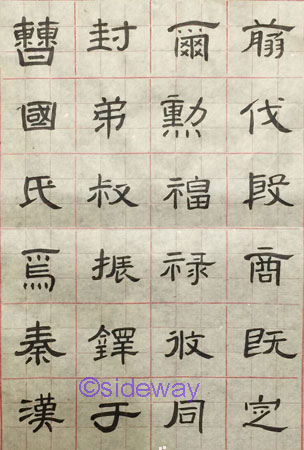 翦伐殷商既定
爾勳福祿攸同
封弟叔振鐸于
曹國氏焉秦漢
©sideway